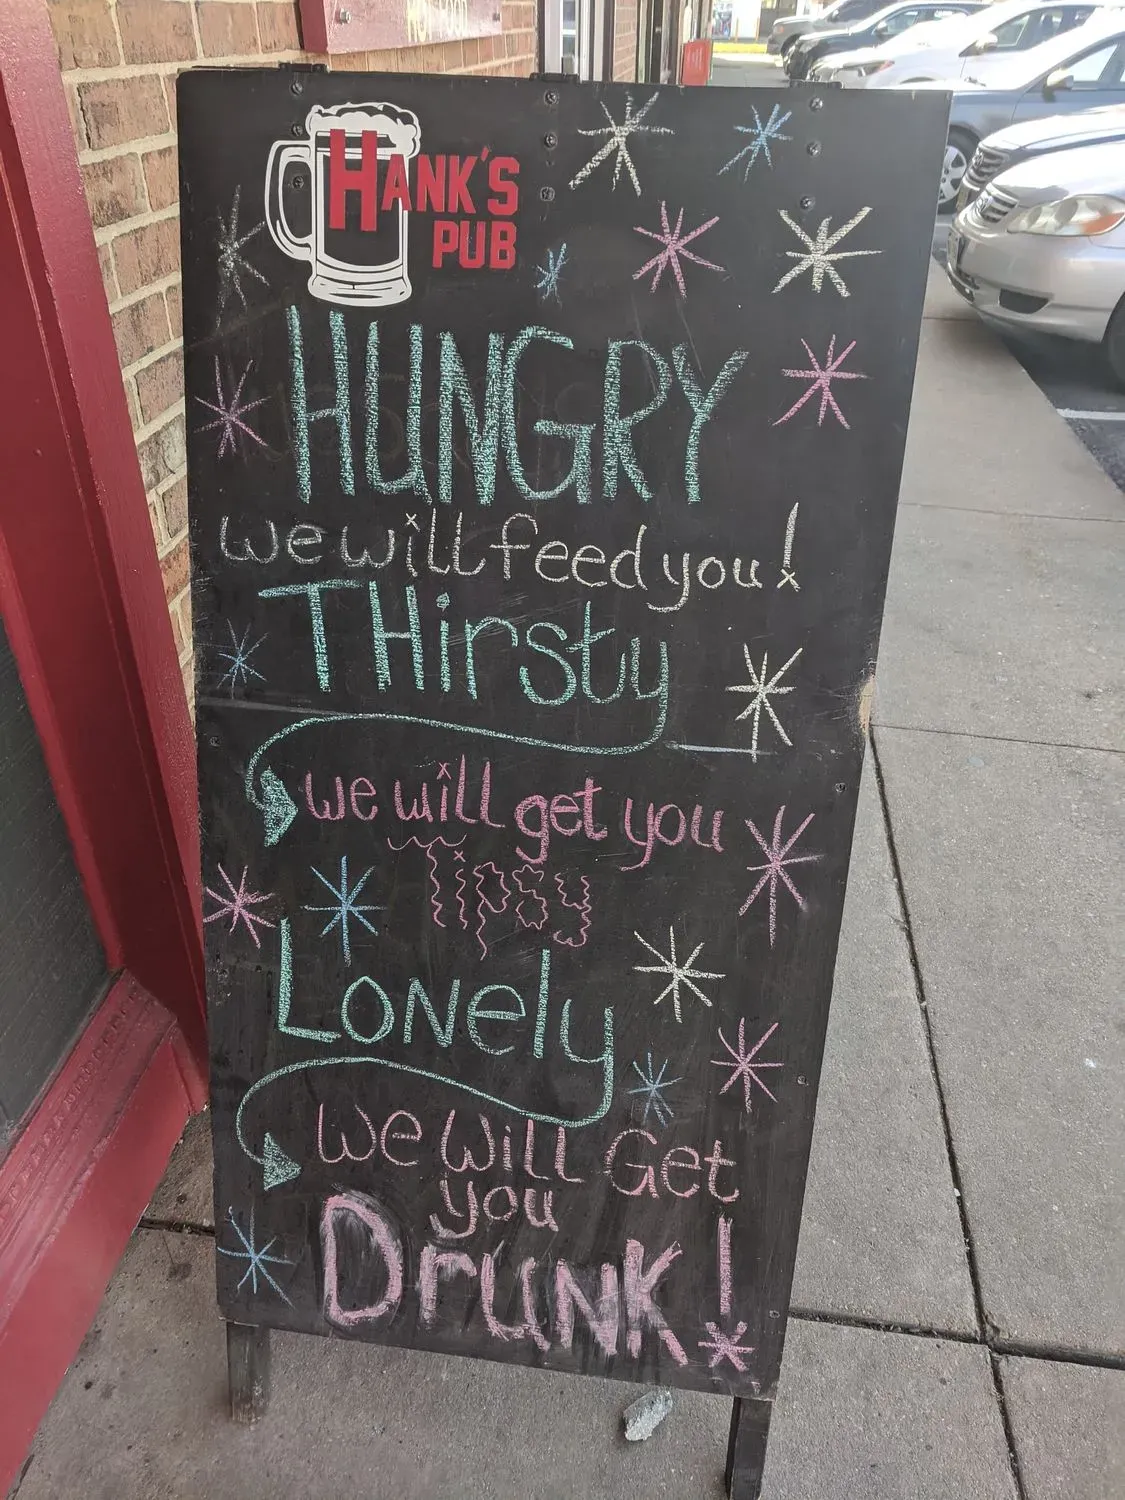 HANK'S
PUB
HUNGRY
we will feed you!
THirsty
we will get you
Tipsy
LONely
We Will Get
you
DrUNK!